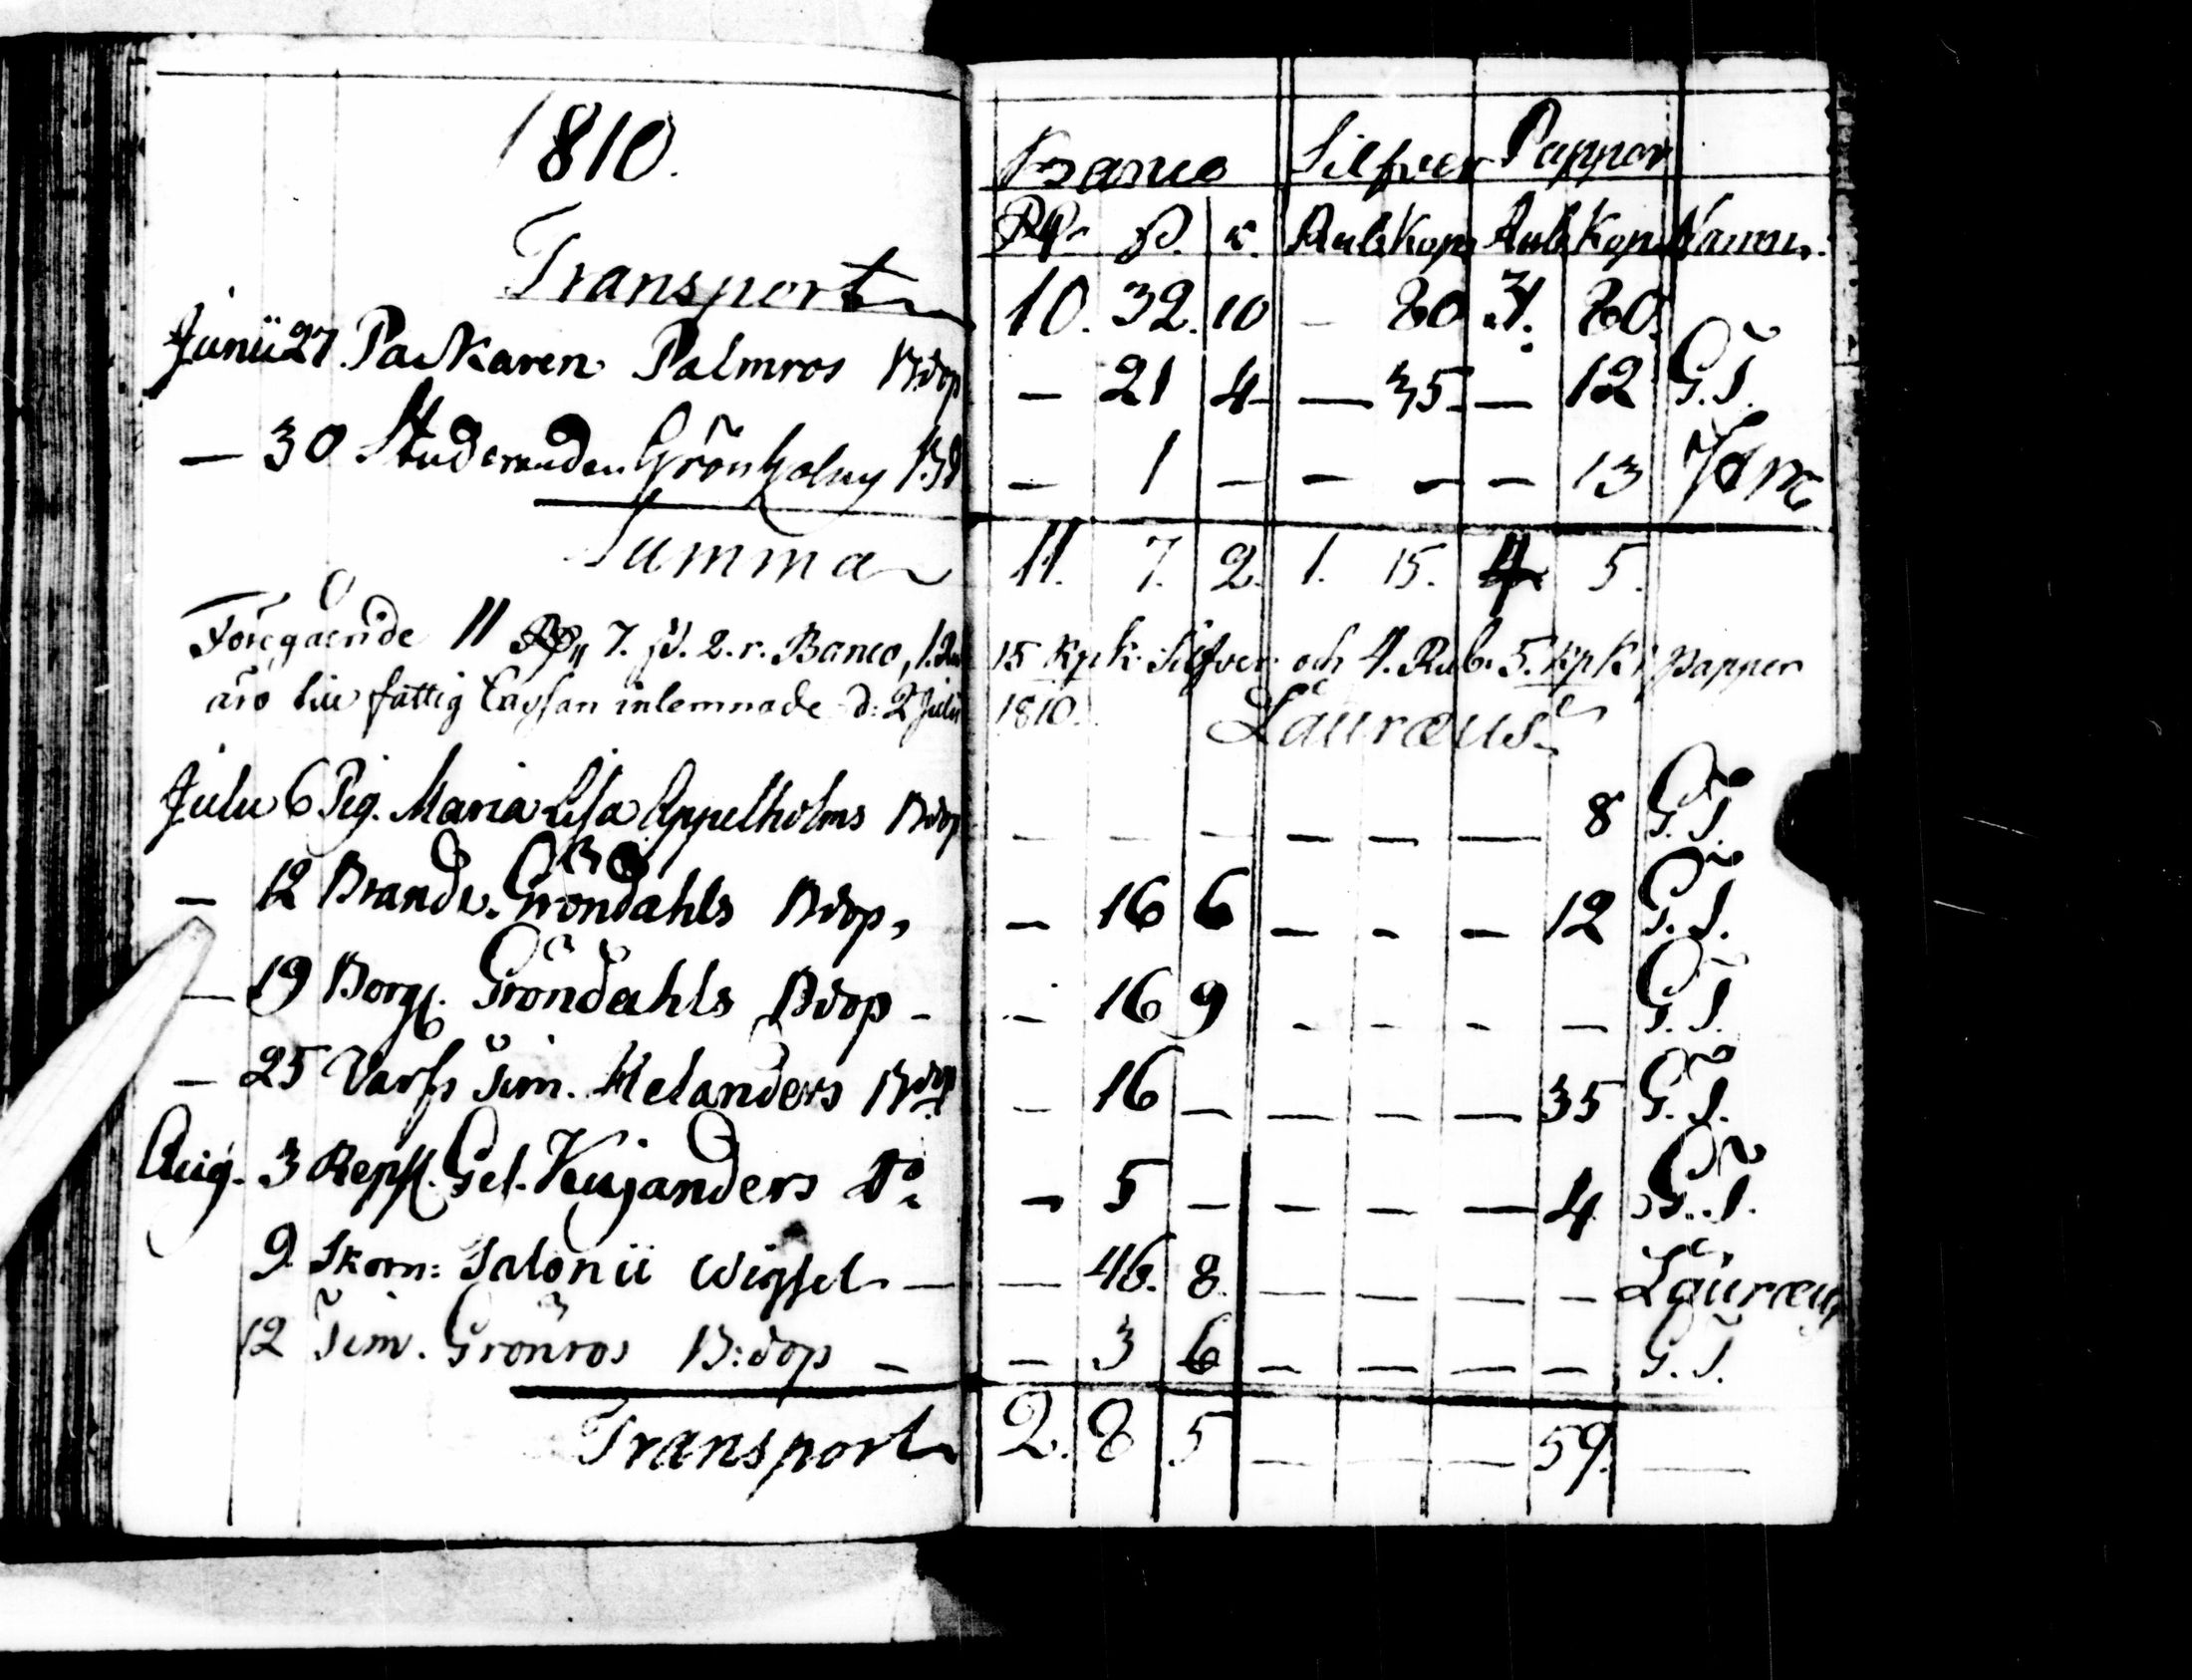 1810.
Banco Silfver Papper
Rd. S. r. Rub. Kop. Rub. Kop. Namn.
Transport 10. 32. 10 - 80 3. 80.
Junii 27. Packaren Palmros B.dop - 21 4 - 35 - 12 G. T.
- 30 Studeranden Grönholms B.d - 1 - - - - 13
Summa 11. 7. 2. 1. 15. 4 5.
Föregående 11 Rd. 7. s. 2. r. Banco, 1. Rub 15 Kpk. Silfver och 4. Rub. 5. Kpk i papper
äro till fattig Cassan inlemnade d: 2 Julii 1810. Lauræus
Julii 6 Pig. Maria Lisa Appelholms B.dop - - - - - - 8 G. T.
- 12 Brandv. Gröndahls B.dop, - 16 6 - - - 12 G. T.
- 19 Borg. Gröndahls B.dop - - 16 9 - - - - G. T.
- 25 Varfs Tim. Helanders B.dop - 16 - - - - 35 G. T.
Aug. 3 Repsl. Gel. Kujanders Do - 5 - - - - 4 G. T.
9. Skom: Salonii wigsel - - 46. 8. - - - - Lauræus
12 Tim. Grönros B:dop - - 3 6 - - - - G. T.
Transport 2. 8 5 - - - 59. -